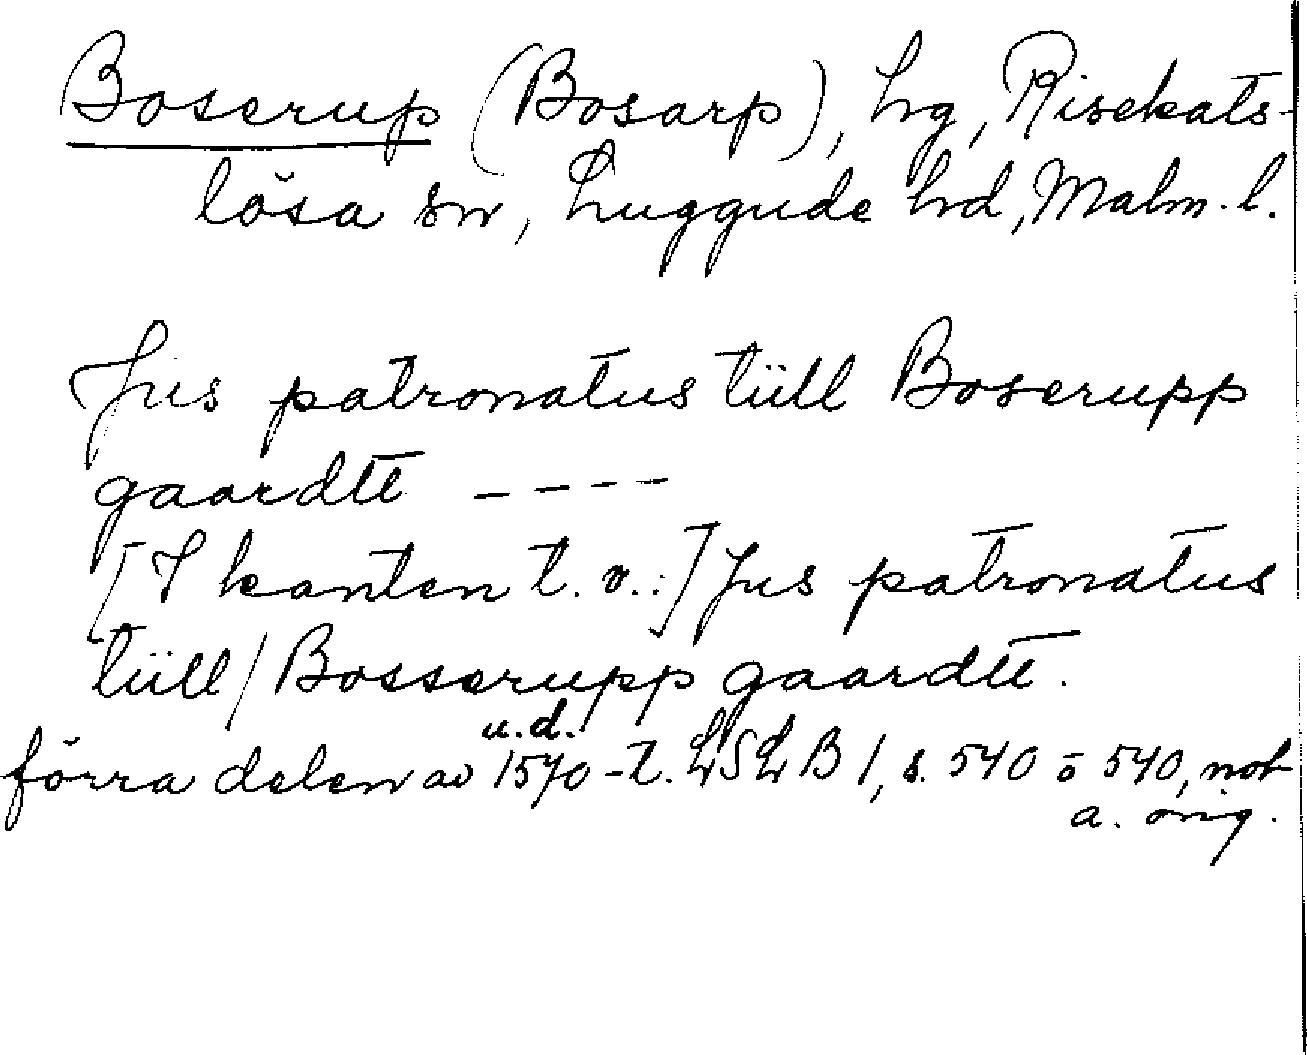 Boserup (Bosarp), hg, Risekats-
lösa sn, Luggude hd, Malm. l.
Jus patronatus tüll Boserupp
gaardtt ----
[I kanten t. v.:] Jus patronatus
tüll/Bosserupp gaardtt.
u.d.
förra delen av 1570-t. LSLB 1, s. 540 o 540, not
a. orig.